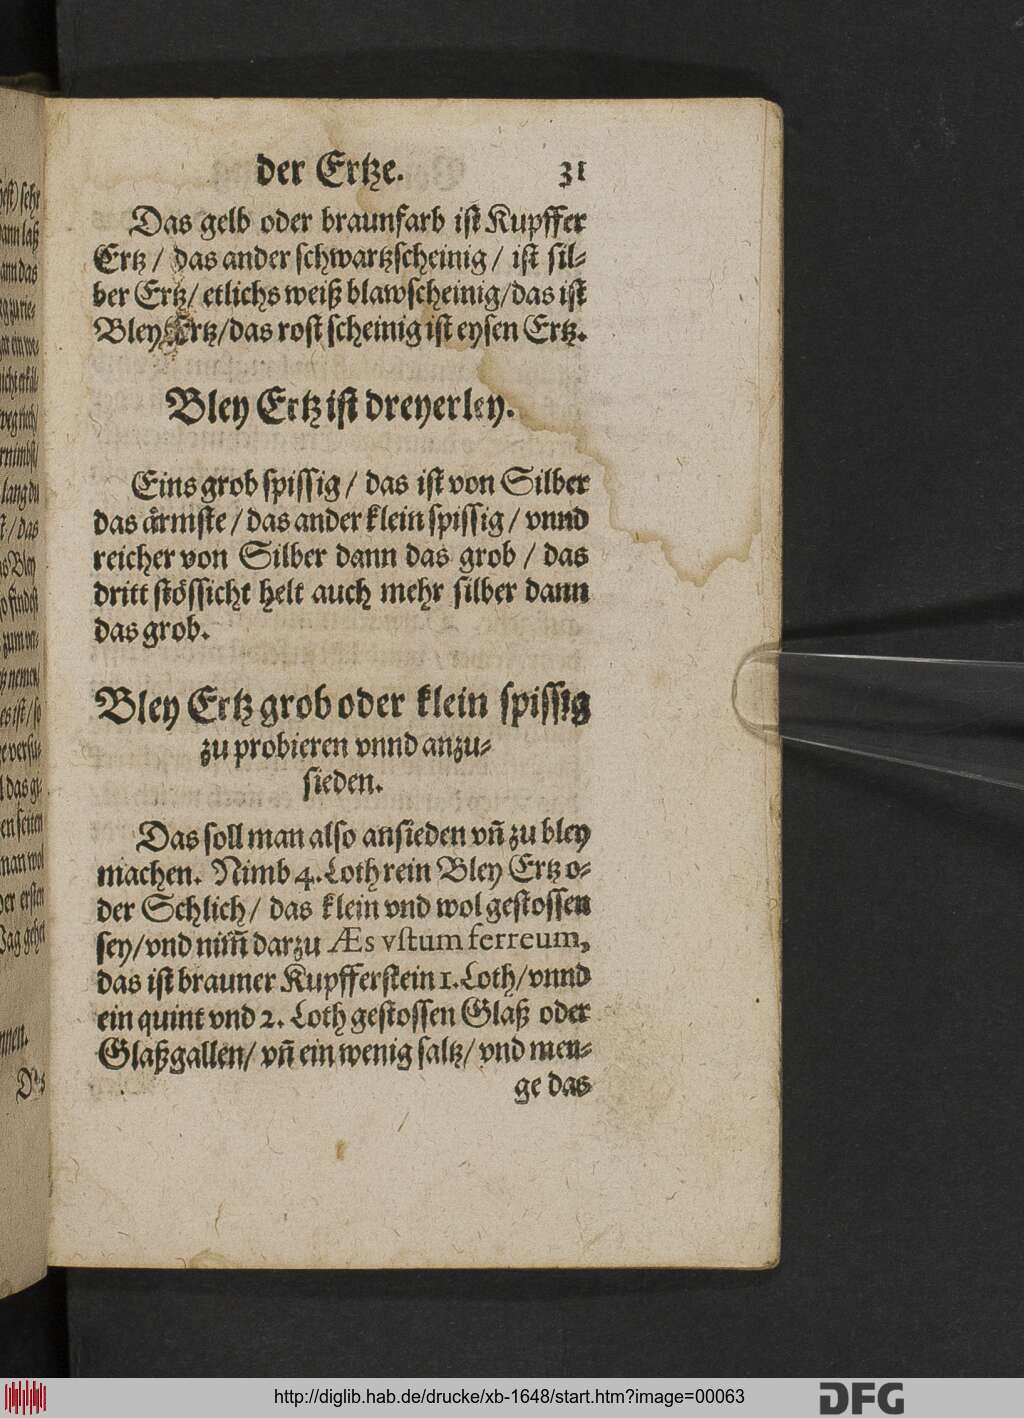 der Ertze. 31
Das gelb oder braunfarb ist Kupffer
Ertz / das ander schwartzscheinig / ist sil-
ber Ertz / etlichs weiß blawscheinig / das ist
Bley Ertz / das rost scheinig ist eysen Ertz.
Bley Ertz ist dreyerley.
Eins grob spissig / das ist von Silber
das ärmste / das ander klein spissig / vnnd
reicher von Silber dann das grob / das
dritt stössicht helt auch mehr silber dann
das grob.
Bley Ertz grob oder klein spissig
zu probieren vnnd anzu-
sieden.
Das soll man also ansieden vñ zu bley
machen. Nimb 4. Loth rein Bley Ertz o-
der Schlich / das klein vnd wol gestossen
sey / vnd nim̃ darzu Æs vstum ferreum,
das ist brauner Kupfferstein 1. Loth / vnnd
ein quint vnd 2. Loth gestossen Glaß oder
Glaßgallen / vñ ein wenig saltz / vnd men-
ge das
http://diglib.hab.de/drucke/xb-1648/start.htm?image=00063
DFG